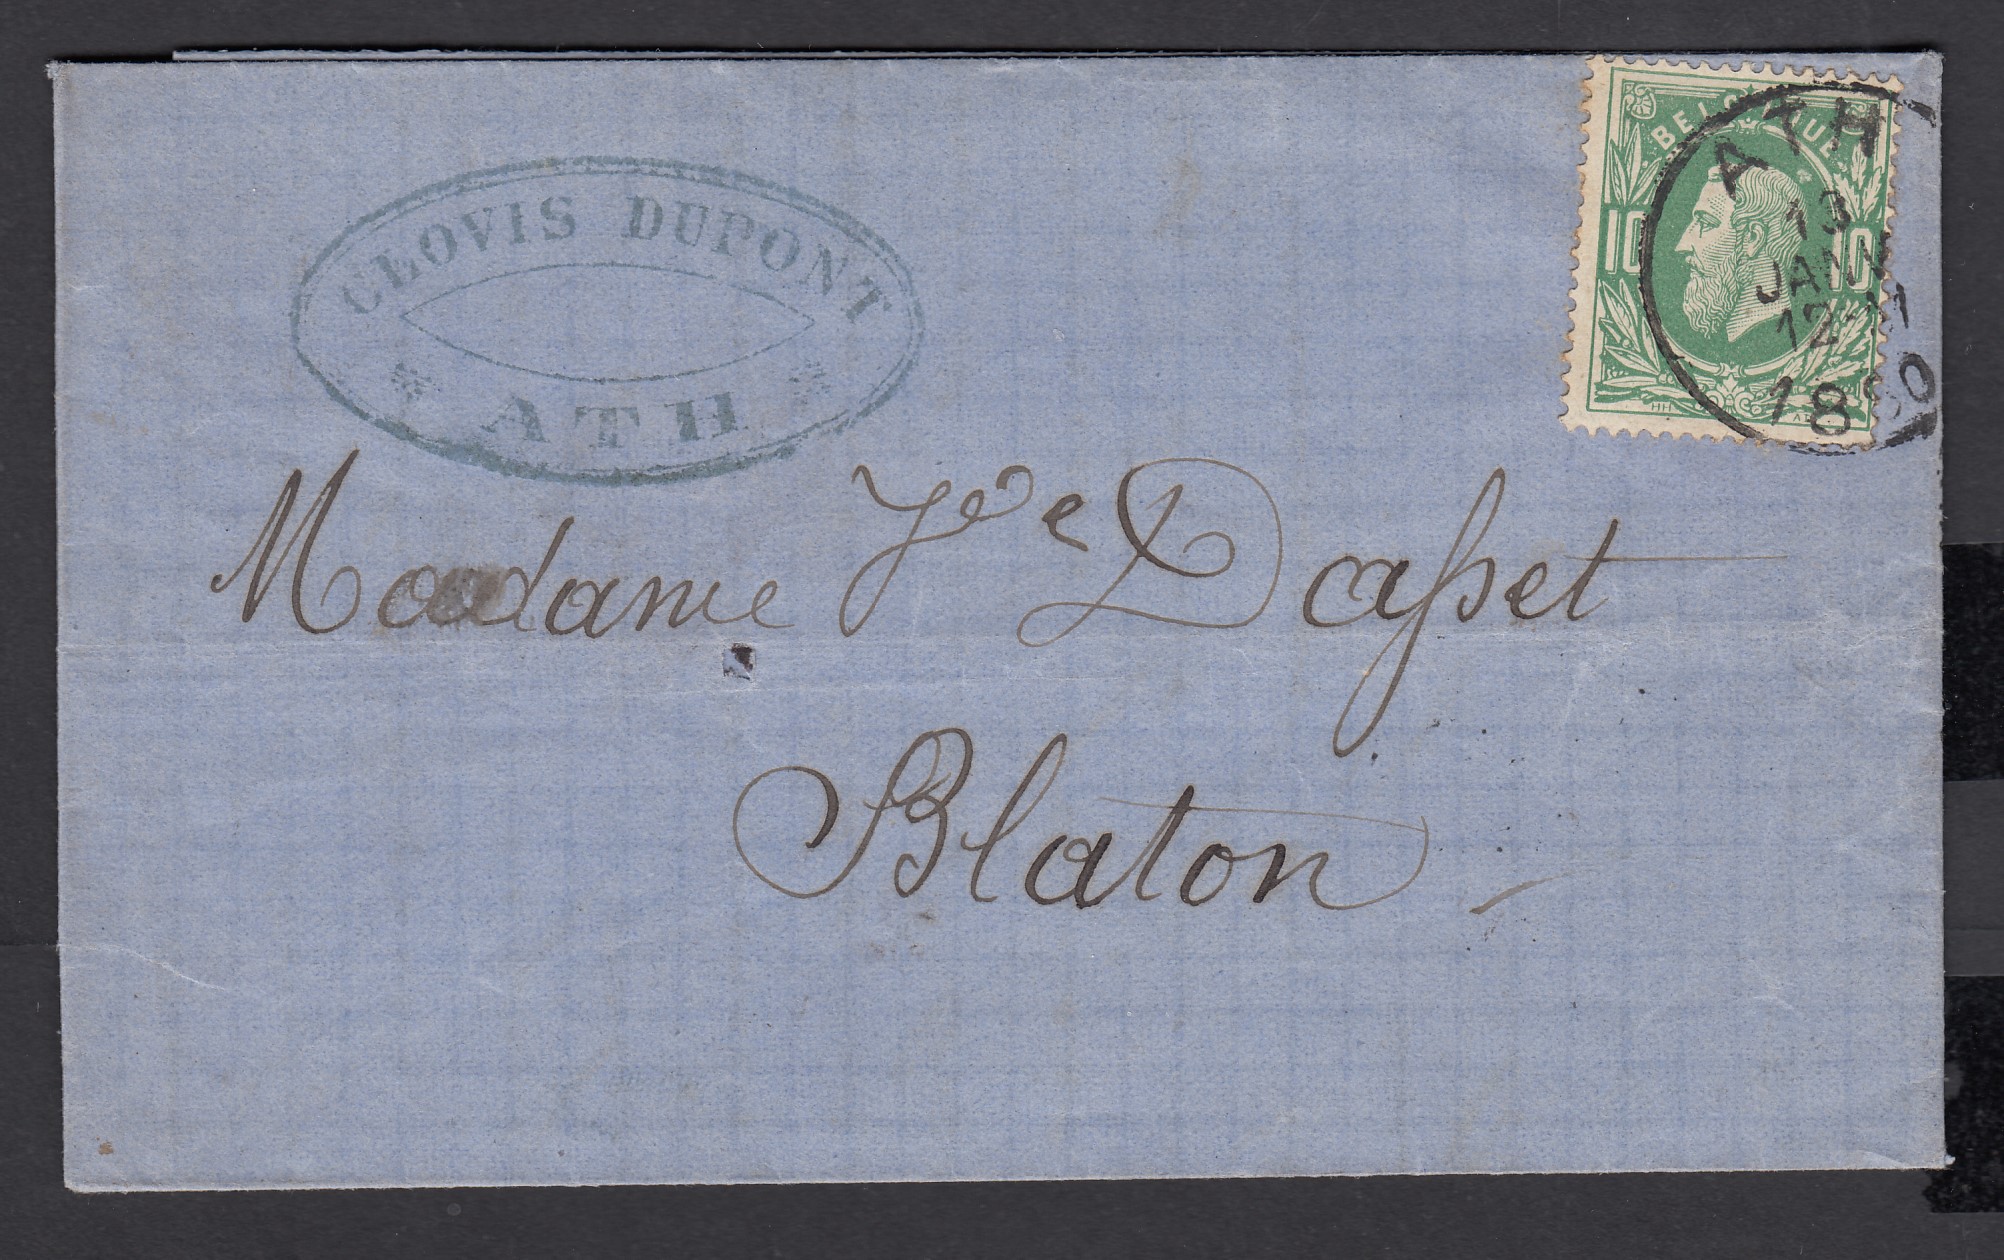 CLOVIS DUPONT
* ATH *
BELGIQUE
10 10
ATH
13
JANV
12-M
1880
HH
Madame Vve Dasset
Blaton